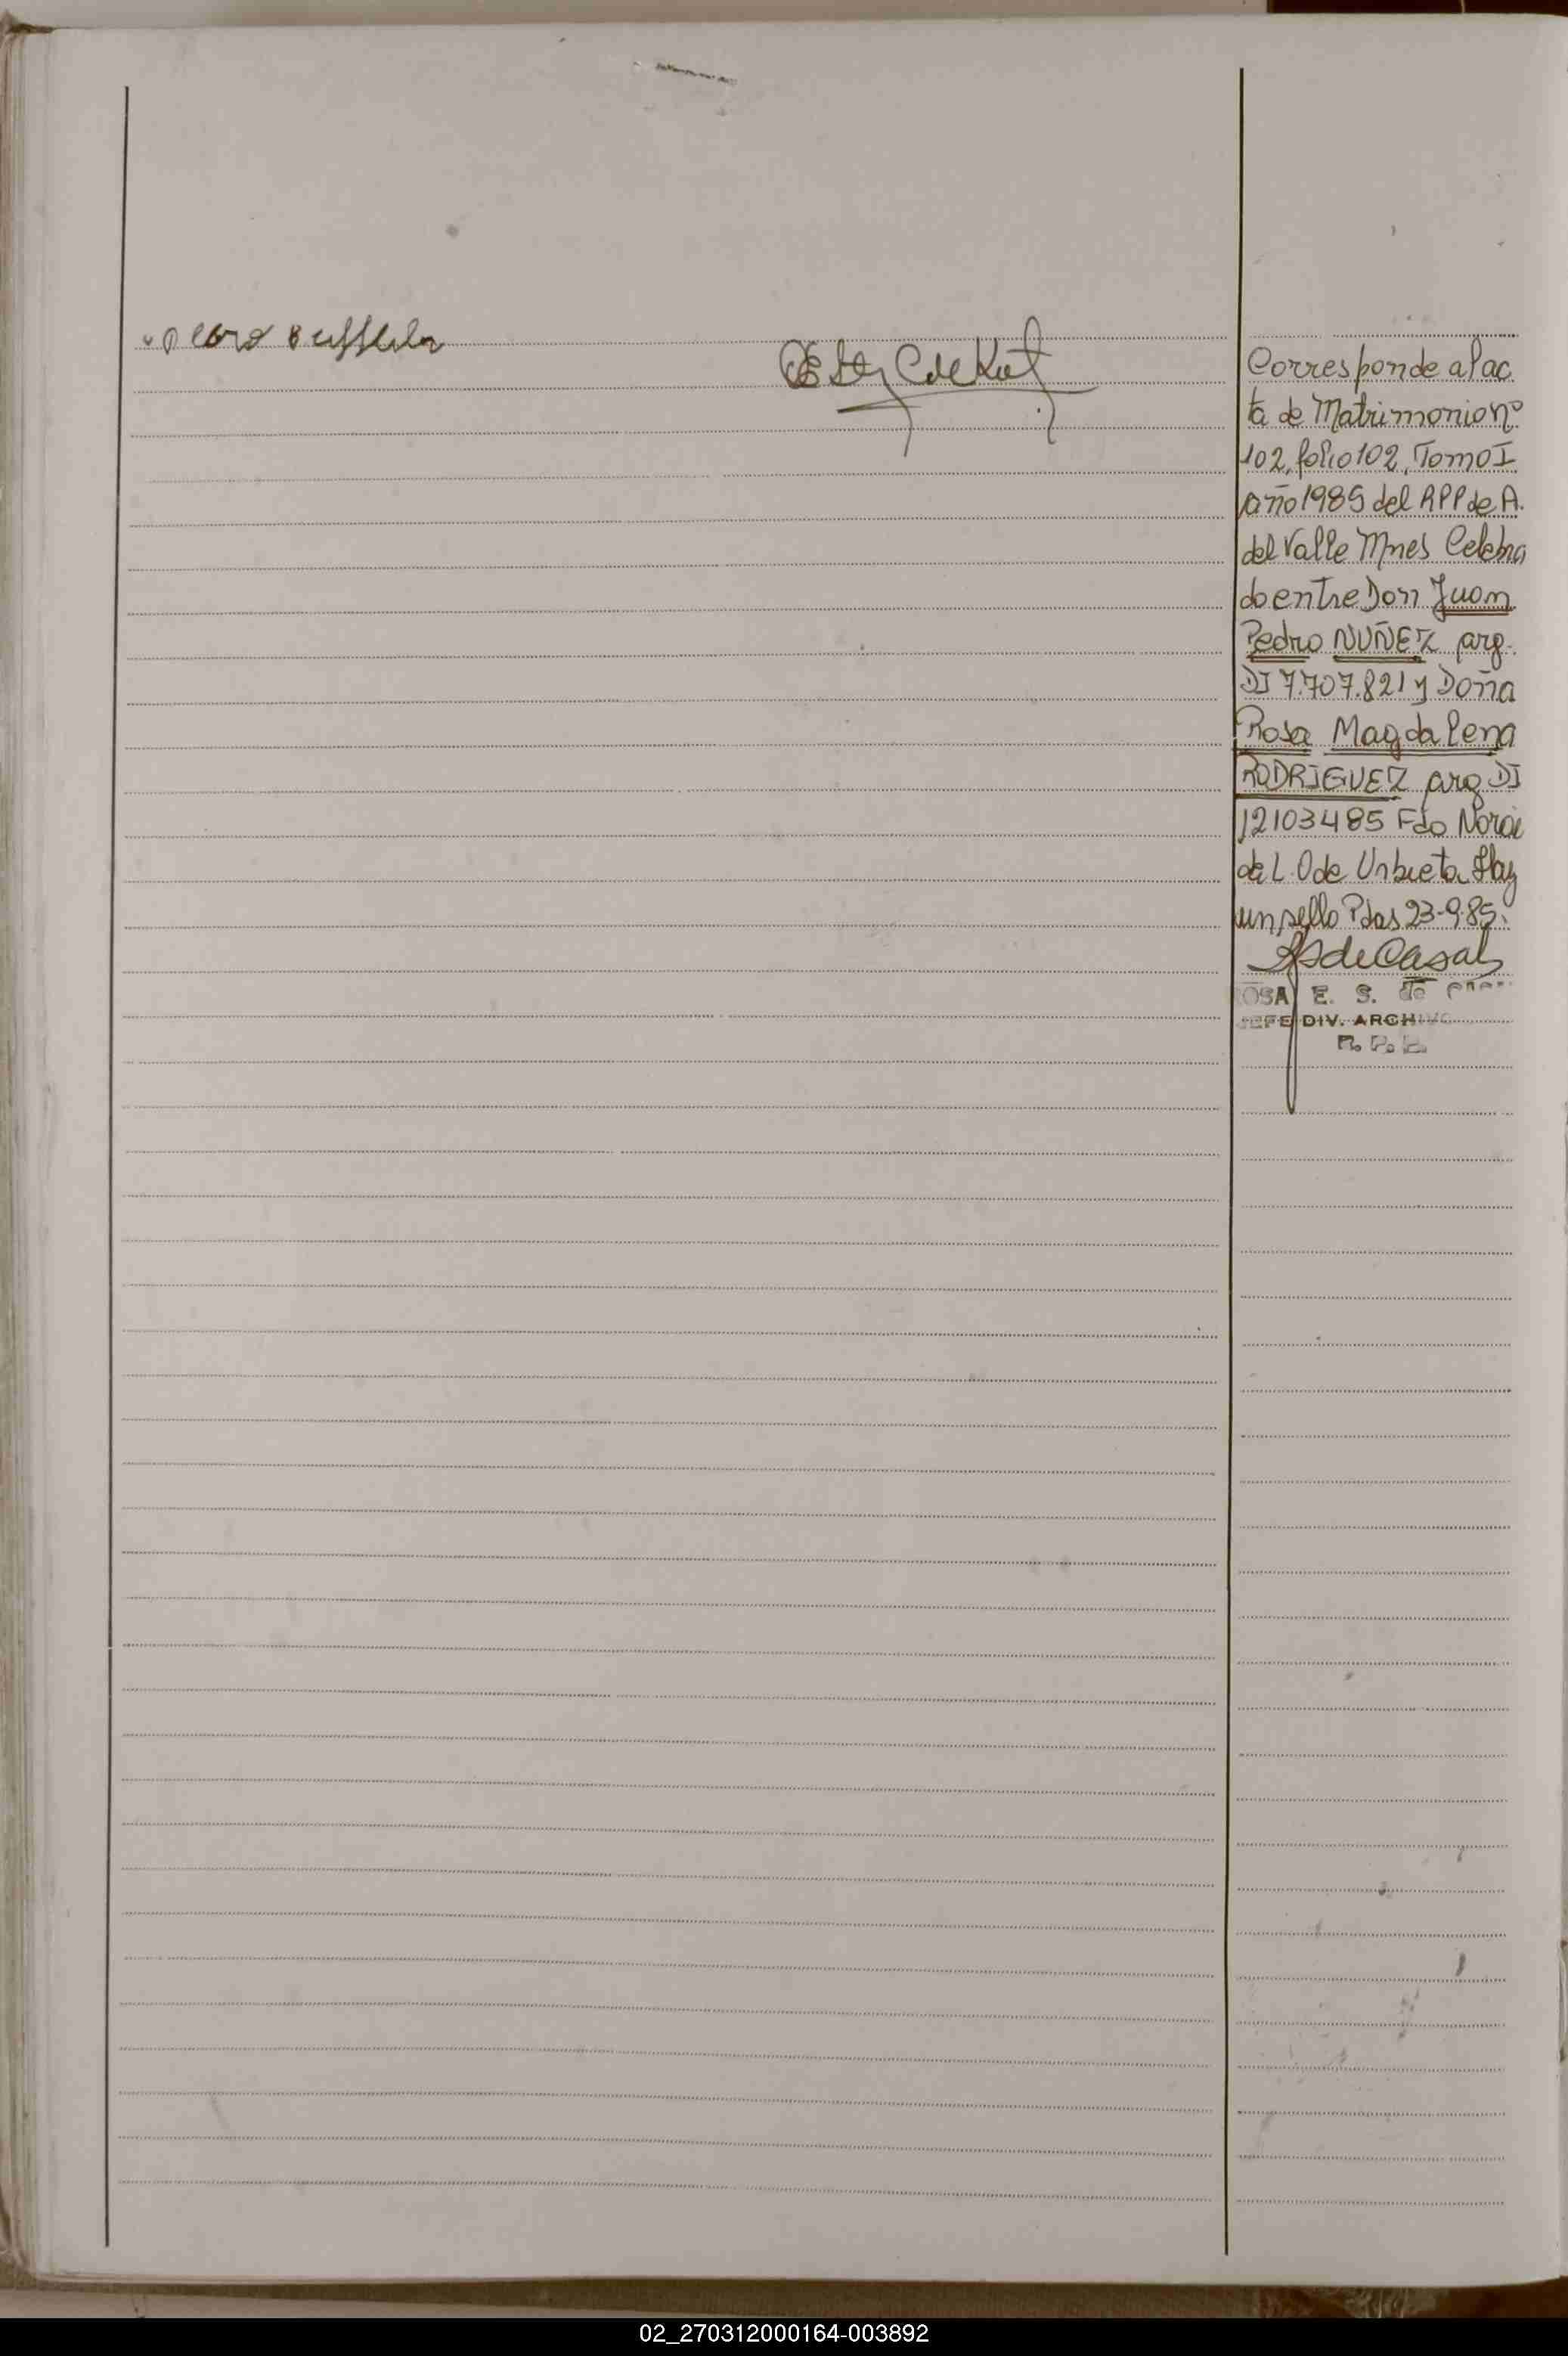 Pedro
Corresponde al ac
ta de Matrimonio nº
102, folio 102, Tomo I
año 1985 del RPP de A.
del Valle Mnes Celebra
do entre Don Juan
Pedro NUÑEZ arg.
DI 7.707.821 y Doña
Rosa Magdalena
RODRIGUEZ arg DI
12103485 Fdo Norai
de L. O de Urbieta Hay
un sello Pdas 23-9-85.
de Casal
ROSA E. S. de
JEFE DIV. ARCHIVO
R. P. P.
02_270312000164-003892